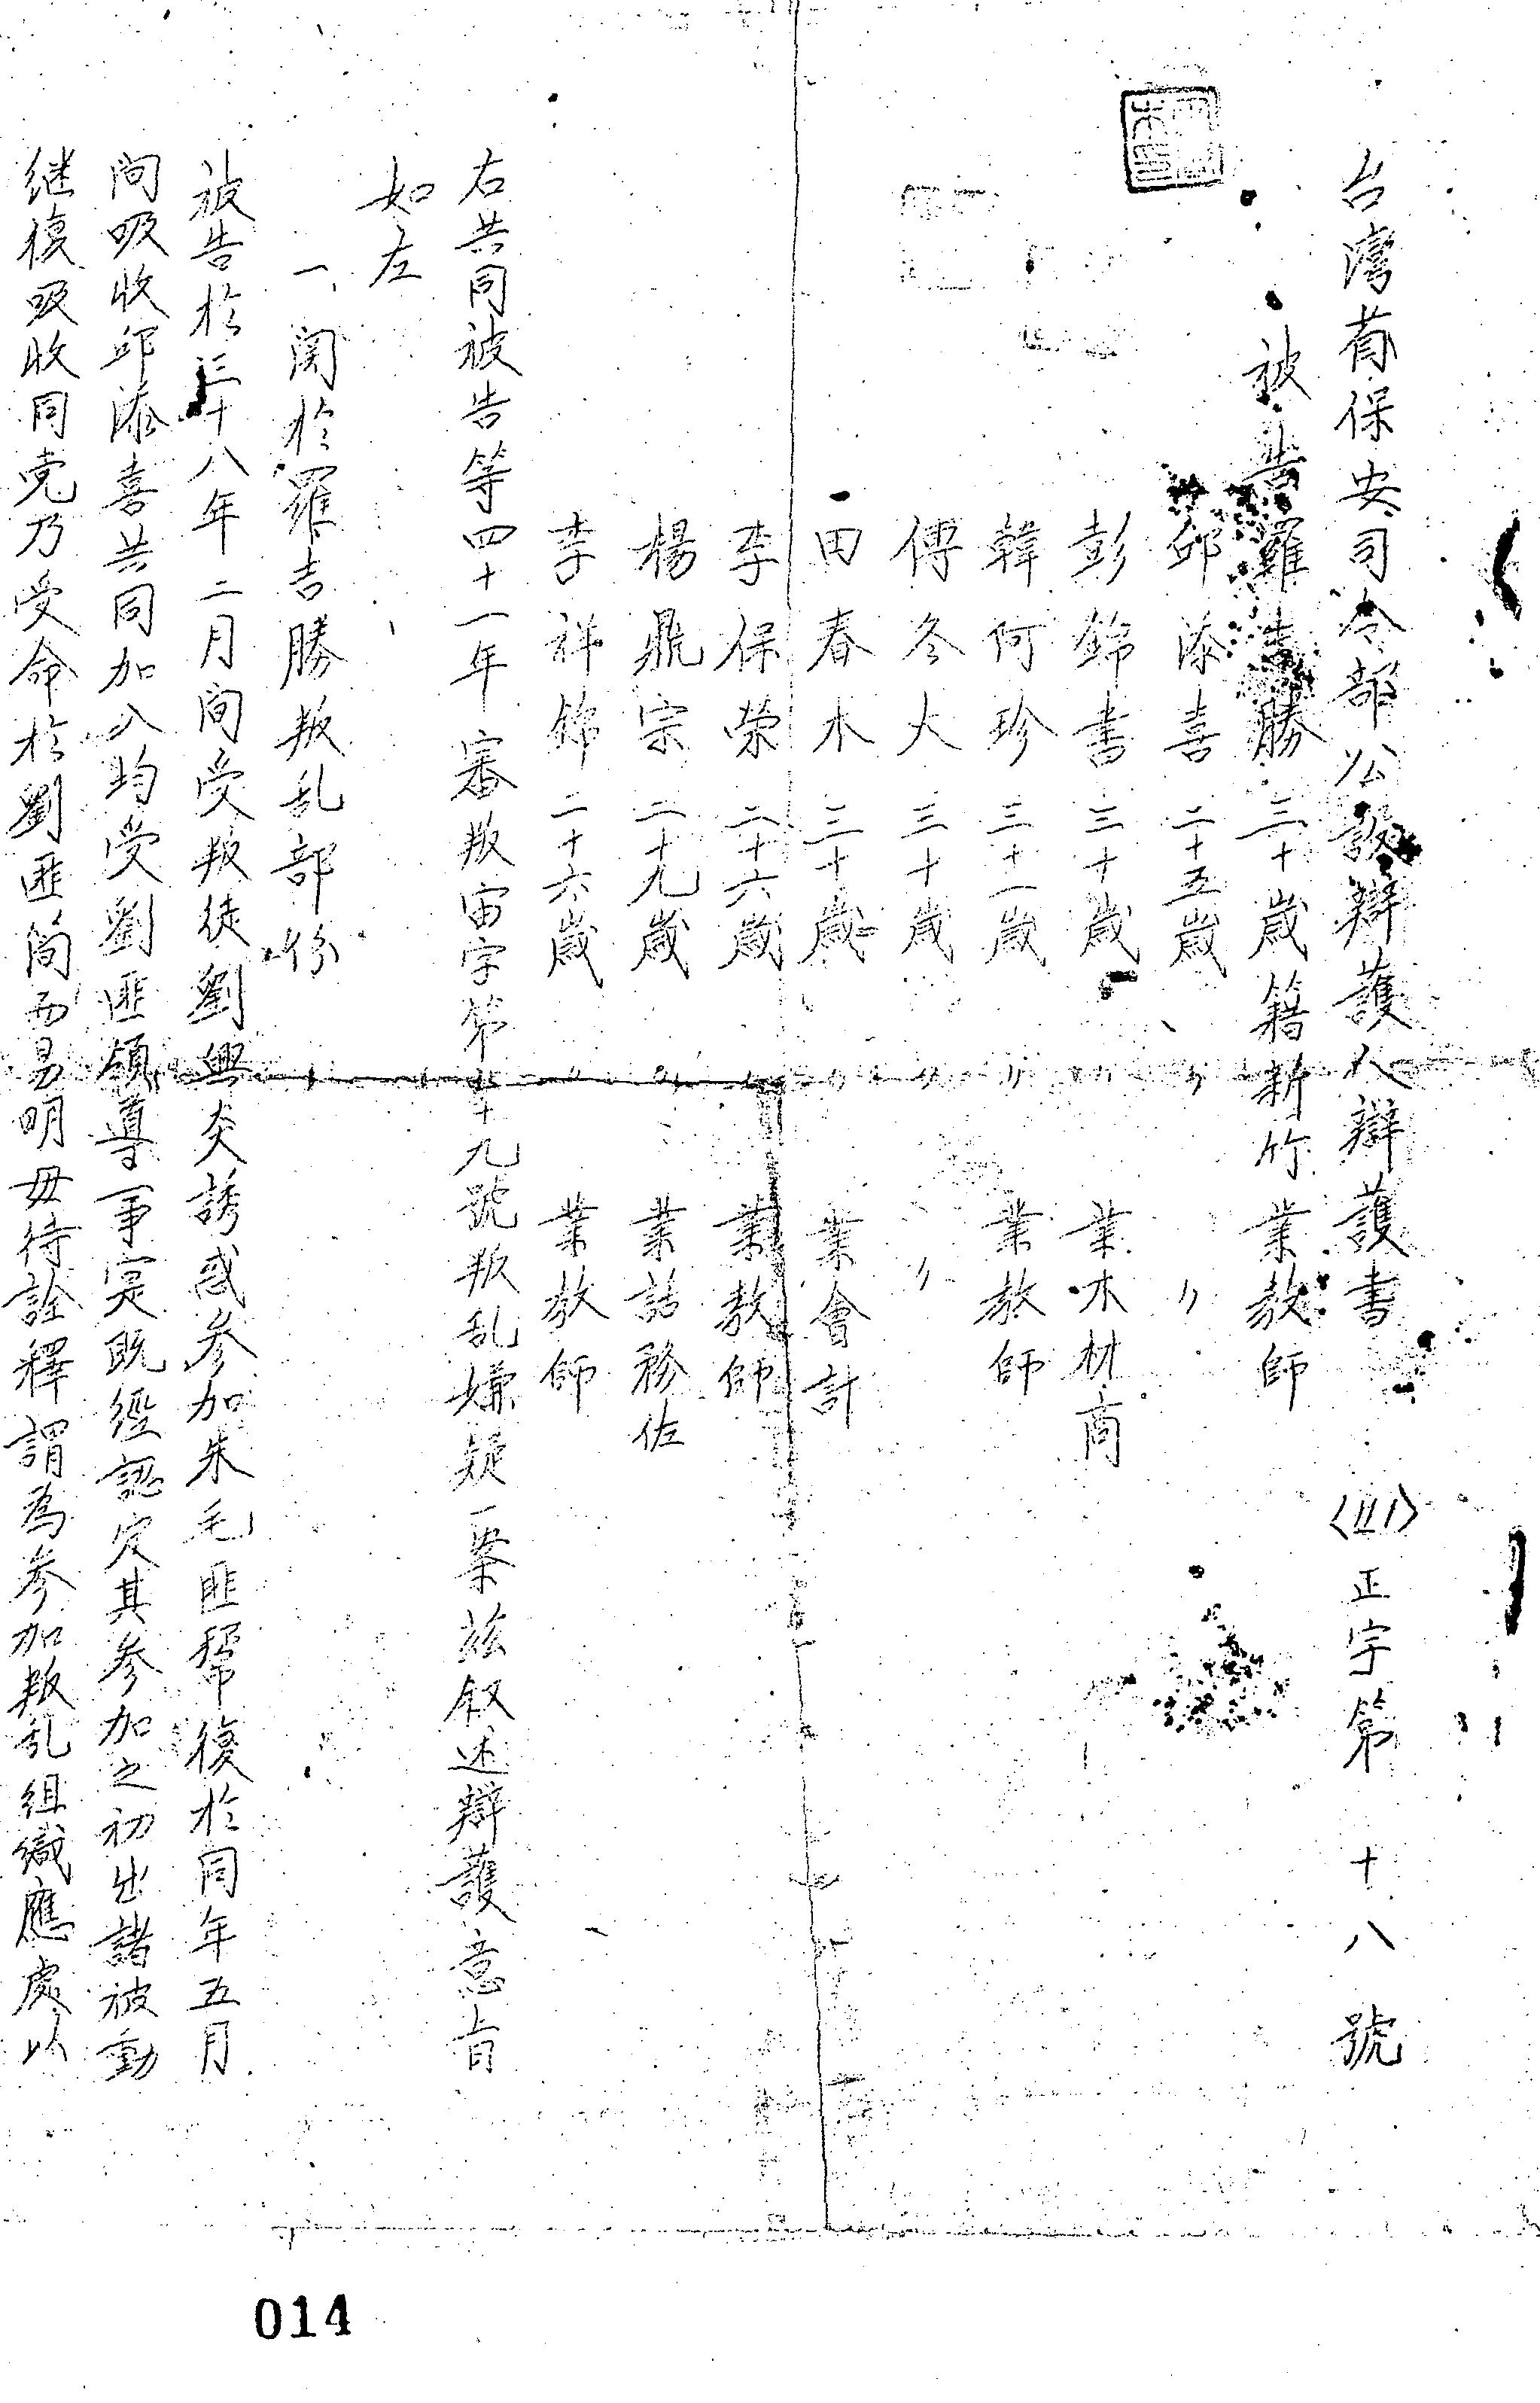 台灣省保安司令部公設辯護人辯護書 (41)正字第 十八 號
被告 羅吉勝 三十歲 籍新竹 業教師
邱添喜 二十五歲 〃 〃
彭錦書 三十歲 〃 業木材商
韓何珍 三十一歲 〃 業教師
傅冬大 三十歲 〃 〃
田春木 三十歲 〃 業會計
李保荣 二十六歲 〃 業教師
楊鼎宗 二十九歲 〃 業話務佐
李祥錦 二十六歲 〃 業教師
右共同被告等四十一年審叛宙字第十九號叛乱嫌疑一案茲叙述辯護意旨
如左
一、関於羅吉勝叛乱部份
被告於三十八年二月间受叛徒劉興炎誘惑参加朱毛匪帮復於同年五月
间吸收邱添喜共同加入均受劉匪領導事实既經認定其参加之初出諸被動
继復吸收同党乃受命於劉匪简而易明毋待詮釋謂為参加叛乱组織應處以
014